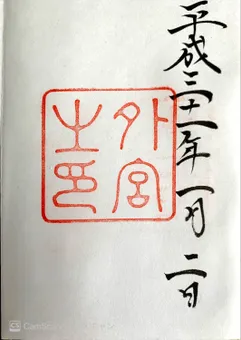 平成三十一年一月二日
外宮
之印